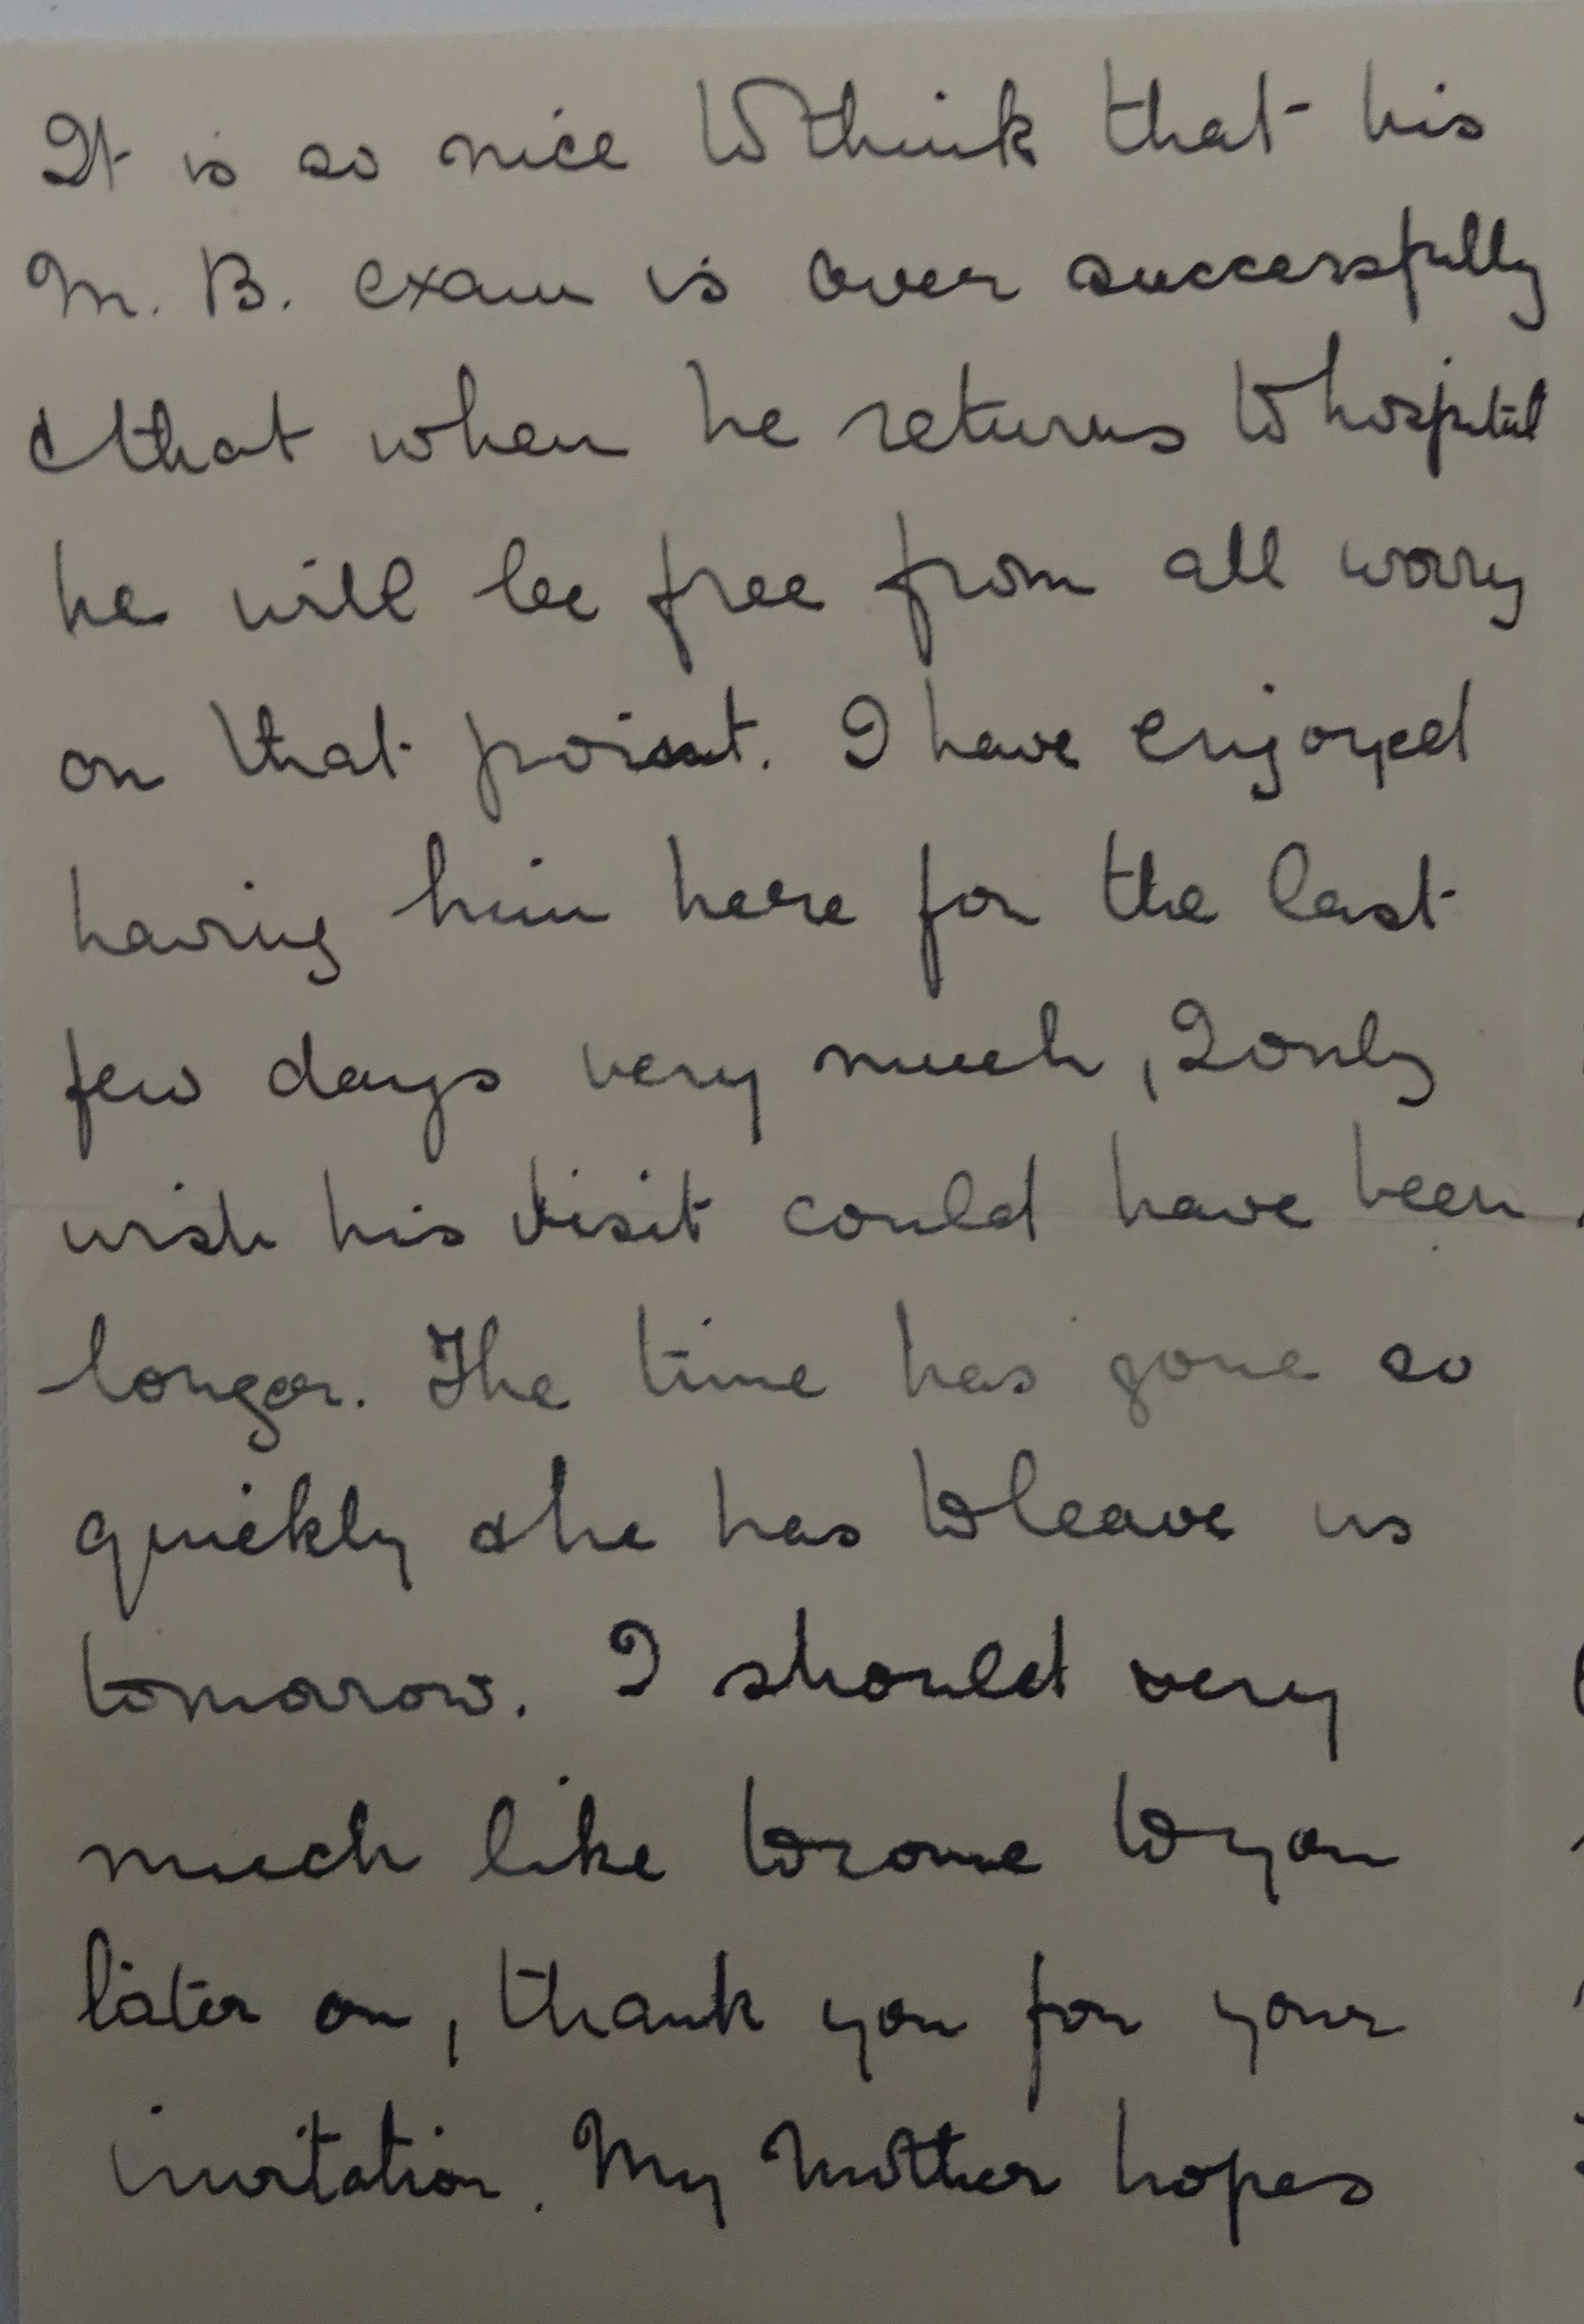 It is so nice to think that his
M. B. exam is over successfully
& that when he returns to hospital
he will be free from all worry
on that point. I have enjoyed
having him here for the last
few days very much, I only
wish his visit could have been
longer. The time has gone so
quickly & he has to leave us
tomorrow. I should very
much like to come to you
later on, thank you for your
invitation. My Mother hopes